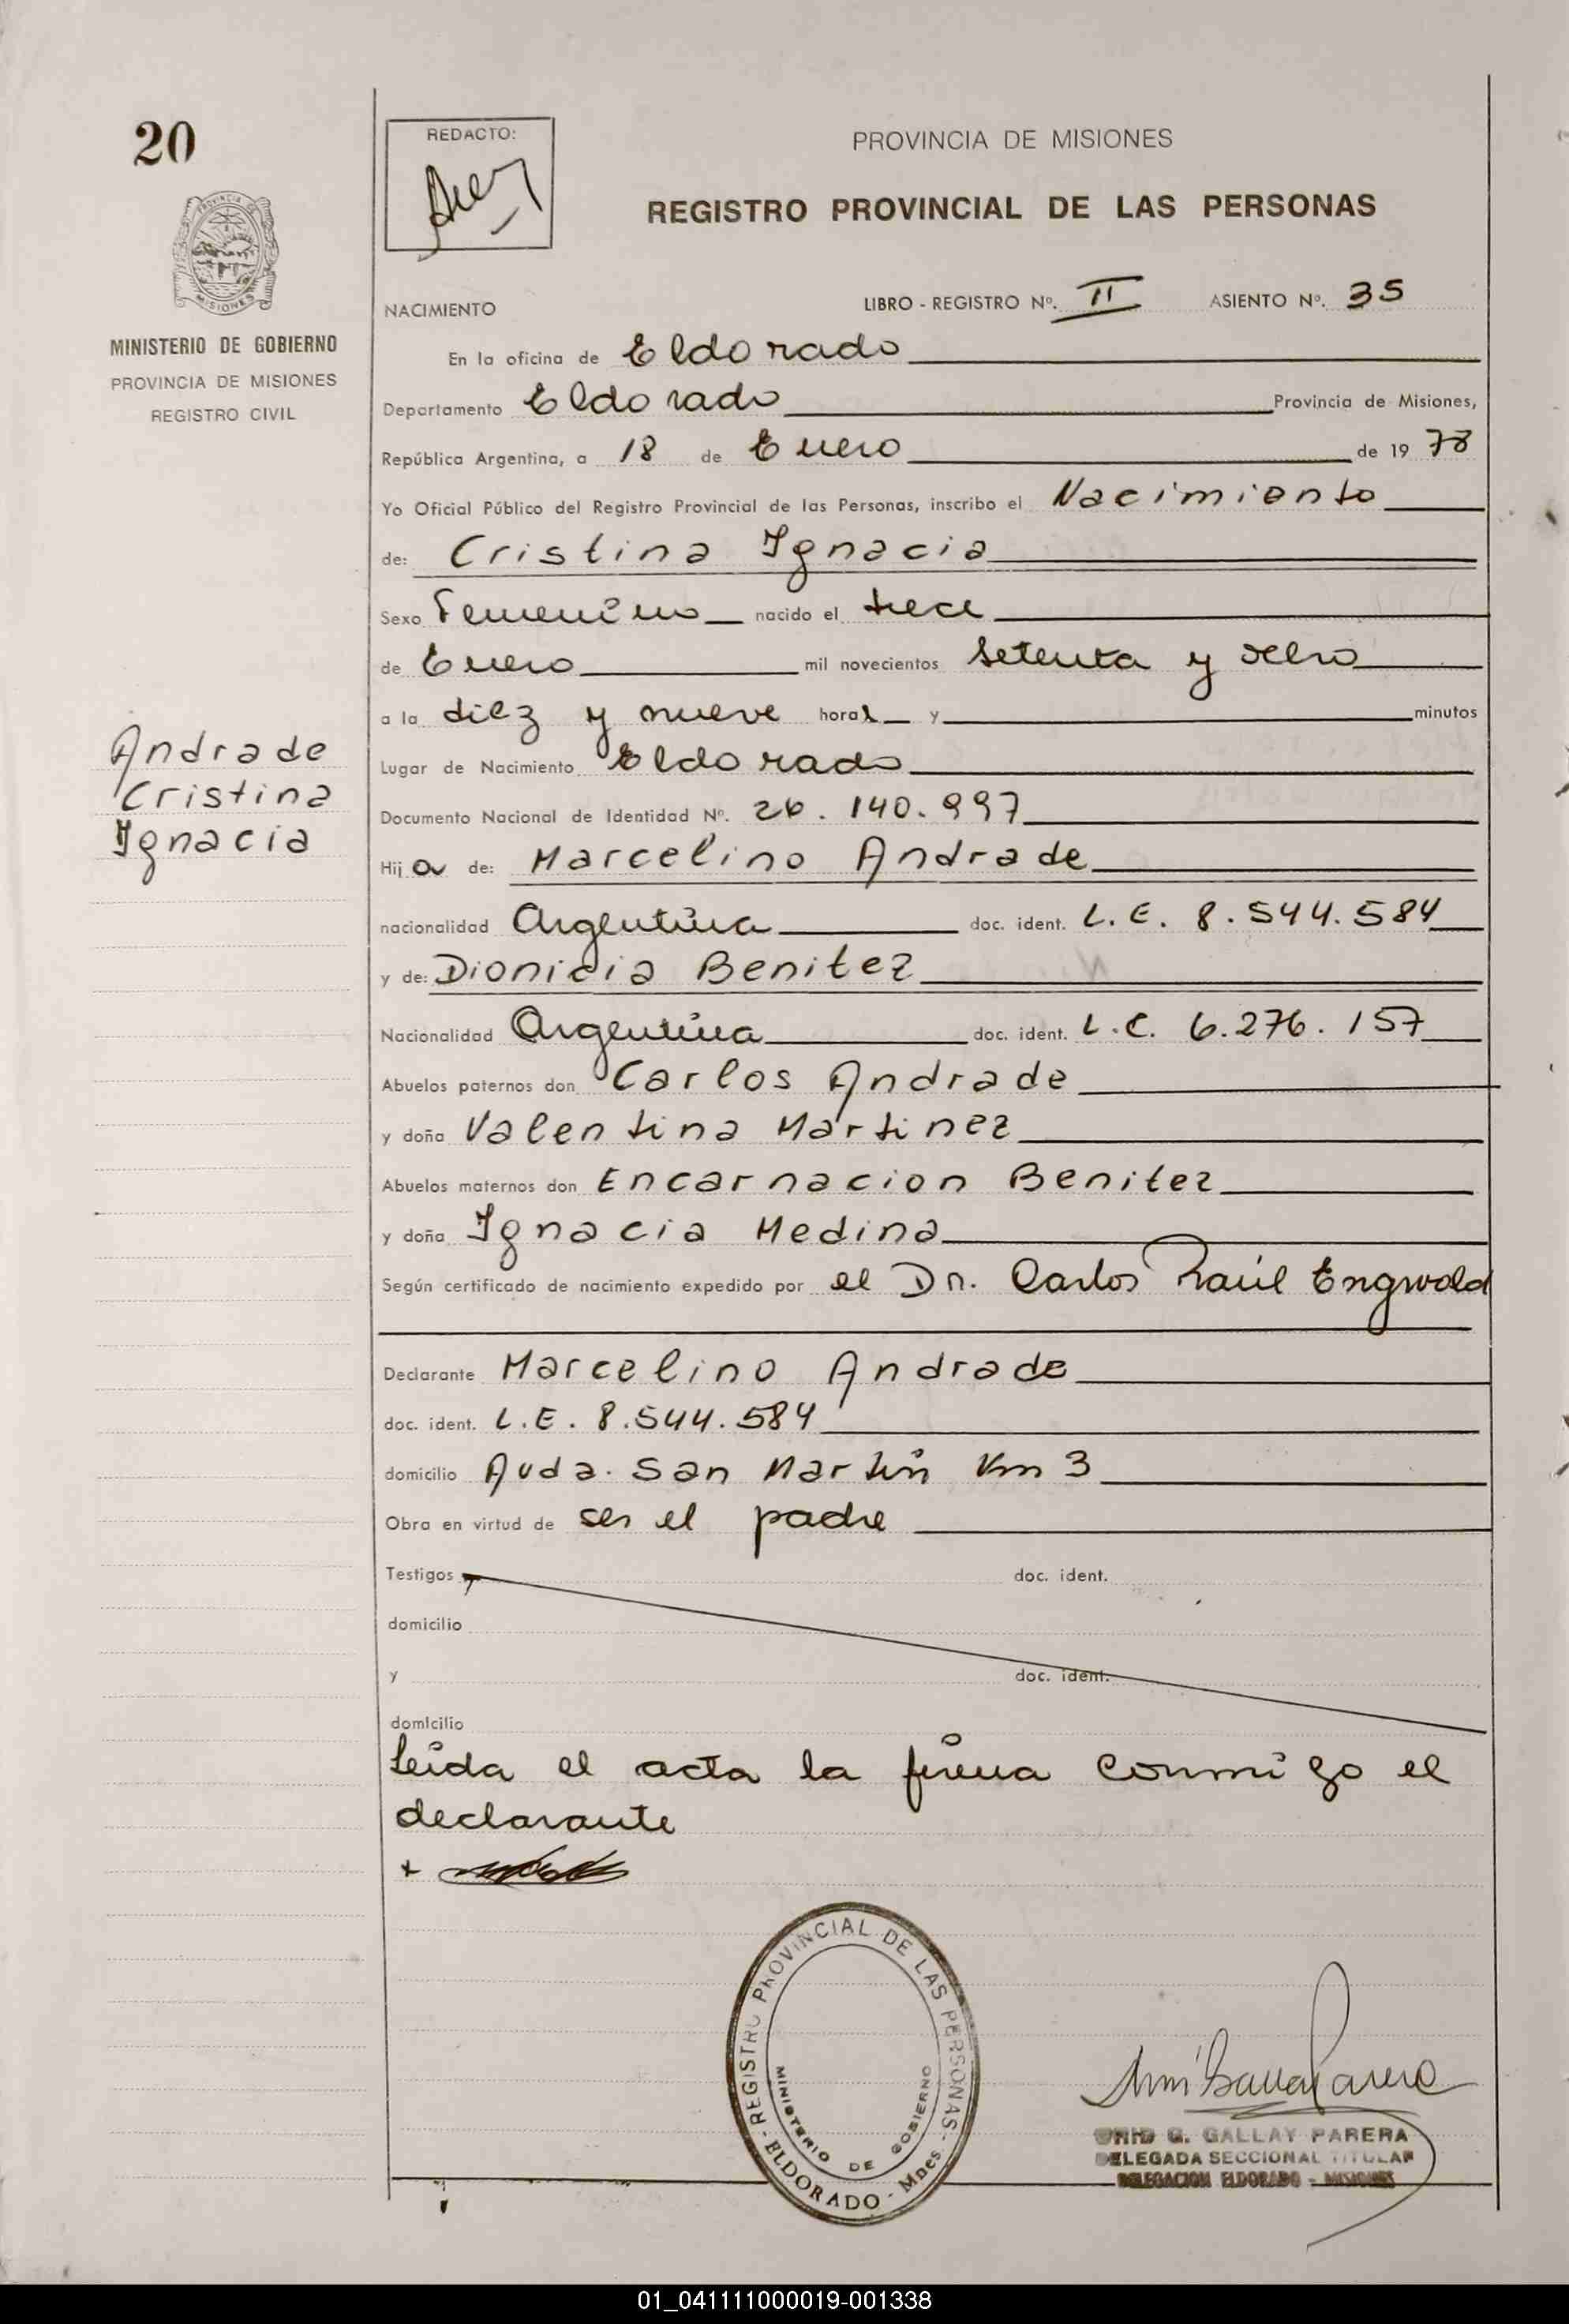 20
REDACTO:
PROVINCIA DE MISIONES
REGISTRO PROVINCIAL DE LAS PERSONAS
MISIONES
MINISTERIO DE GOBIERNO
PROVINCIA DE MISIONES
REGISTRO CIVIL
NACIMIENTO LIBRO - REGISTRO Nº. II ASIENTO Nº. 35
En la oficina de Eldorado
Departamento Eldorado Provincia de Misiones,
República Argentina, a 18 de Enero de 19 78
Yo Oficial Público del Registro Provincial de las Personas, inscribo el Nacimiento
de: Cristina Ignacia
Sexo Femenino nacido el trece
de Enero mil novecientos setenta y ocho
a la diez y nueve horas y minutos
Lugar de Nacimiento Eldorado
Andrade
Cristina
Ignacia
Documento Nacional de Identidad Nº. 26.140.997
Hija de: Marcelino Andrade
nacionalidad Argentina doc. ident. L.E. 8.544.584
y de: Dionicia Benitez
Nacionalidad Argentina doc. ident. L.C. 6.276.157
Abuelos paternos don Carlos Andrade
y doña Valentina Martinez
Abuelos maternos don Encarnacion Benitez
y doña Ignacia Medina
Según certificado de nacimiento expedido por el Dr. Carlos Raúl Engwald
Declarante Marcelino Andrade
doc. ident. L.E. 8.544.584
domicilio Avda. San Martín Km 3
Obra en virtud de ser el padre
Testigos doc. ident.
domicilio
y doc. ident.
domicilio
Leida el acta la firma conmigo el
declarante
REGISTRO PROVINCIAL DE LAS PERSONAS
MINISTERIO DE GOBIERNO
ELDORADO - Mnes.
G. GALLAY PARERA
DELEGADA SECCIONAL TITULAR
DELEGACION ELDORADO - MISIONES
01_041111000019-001338